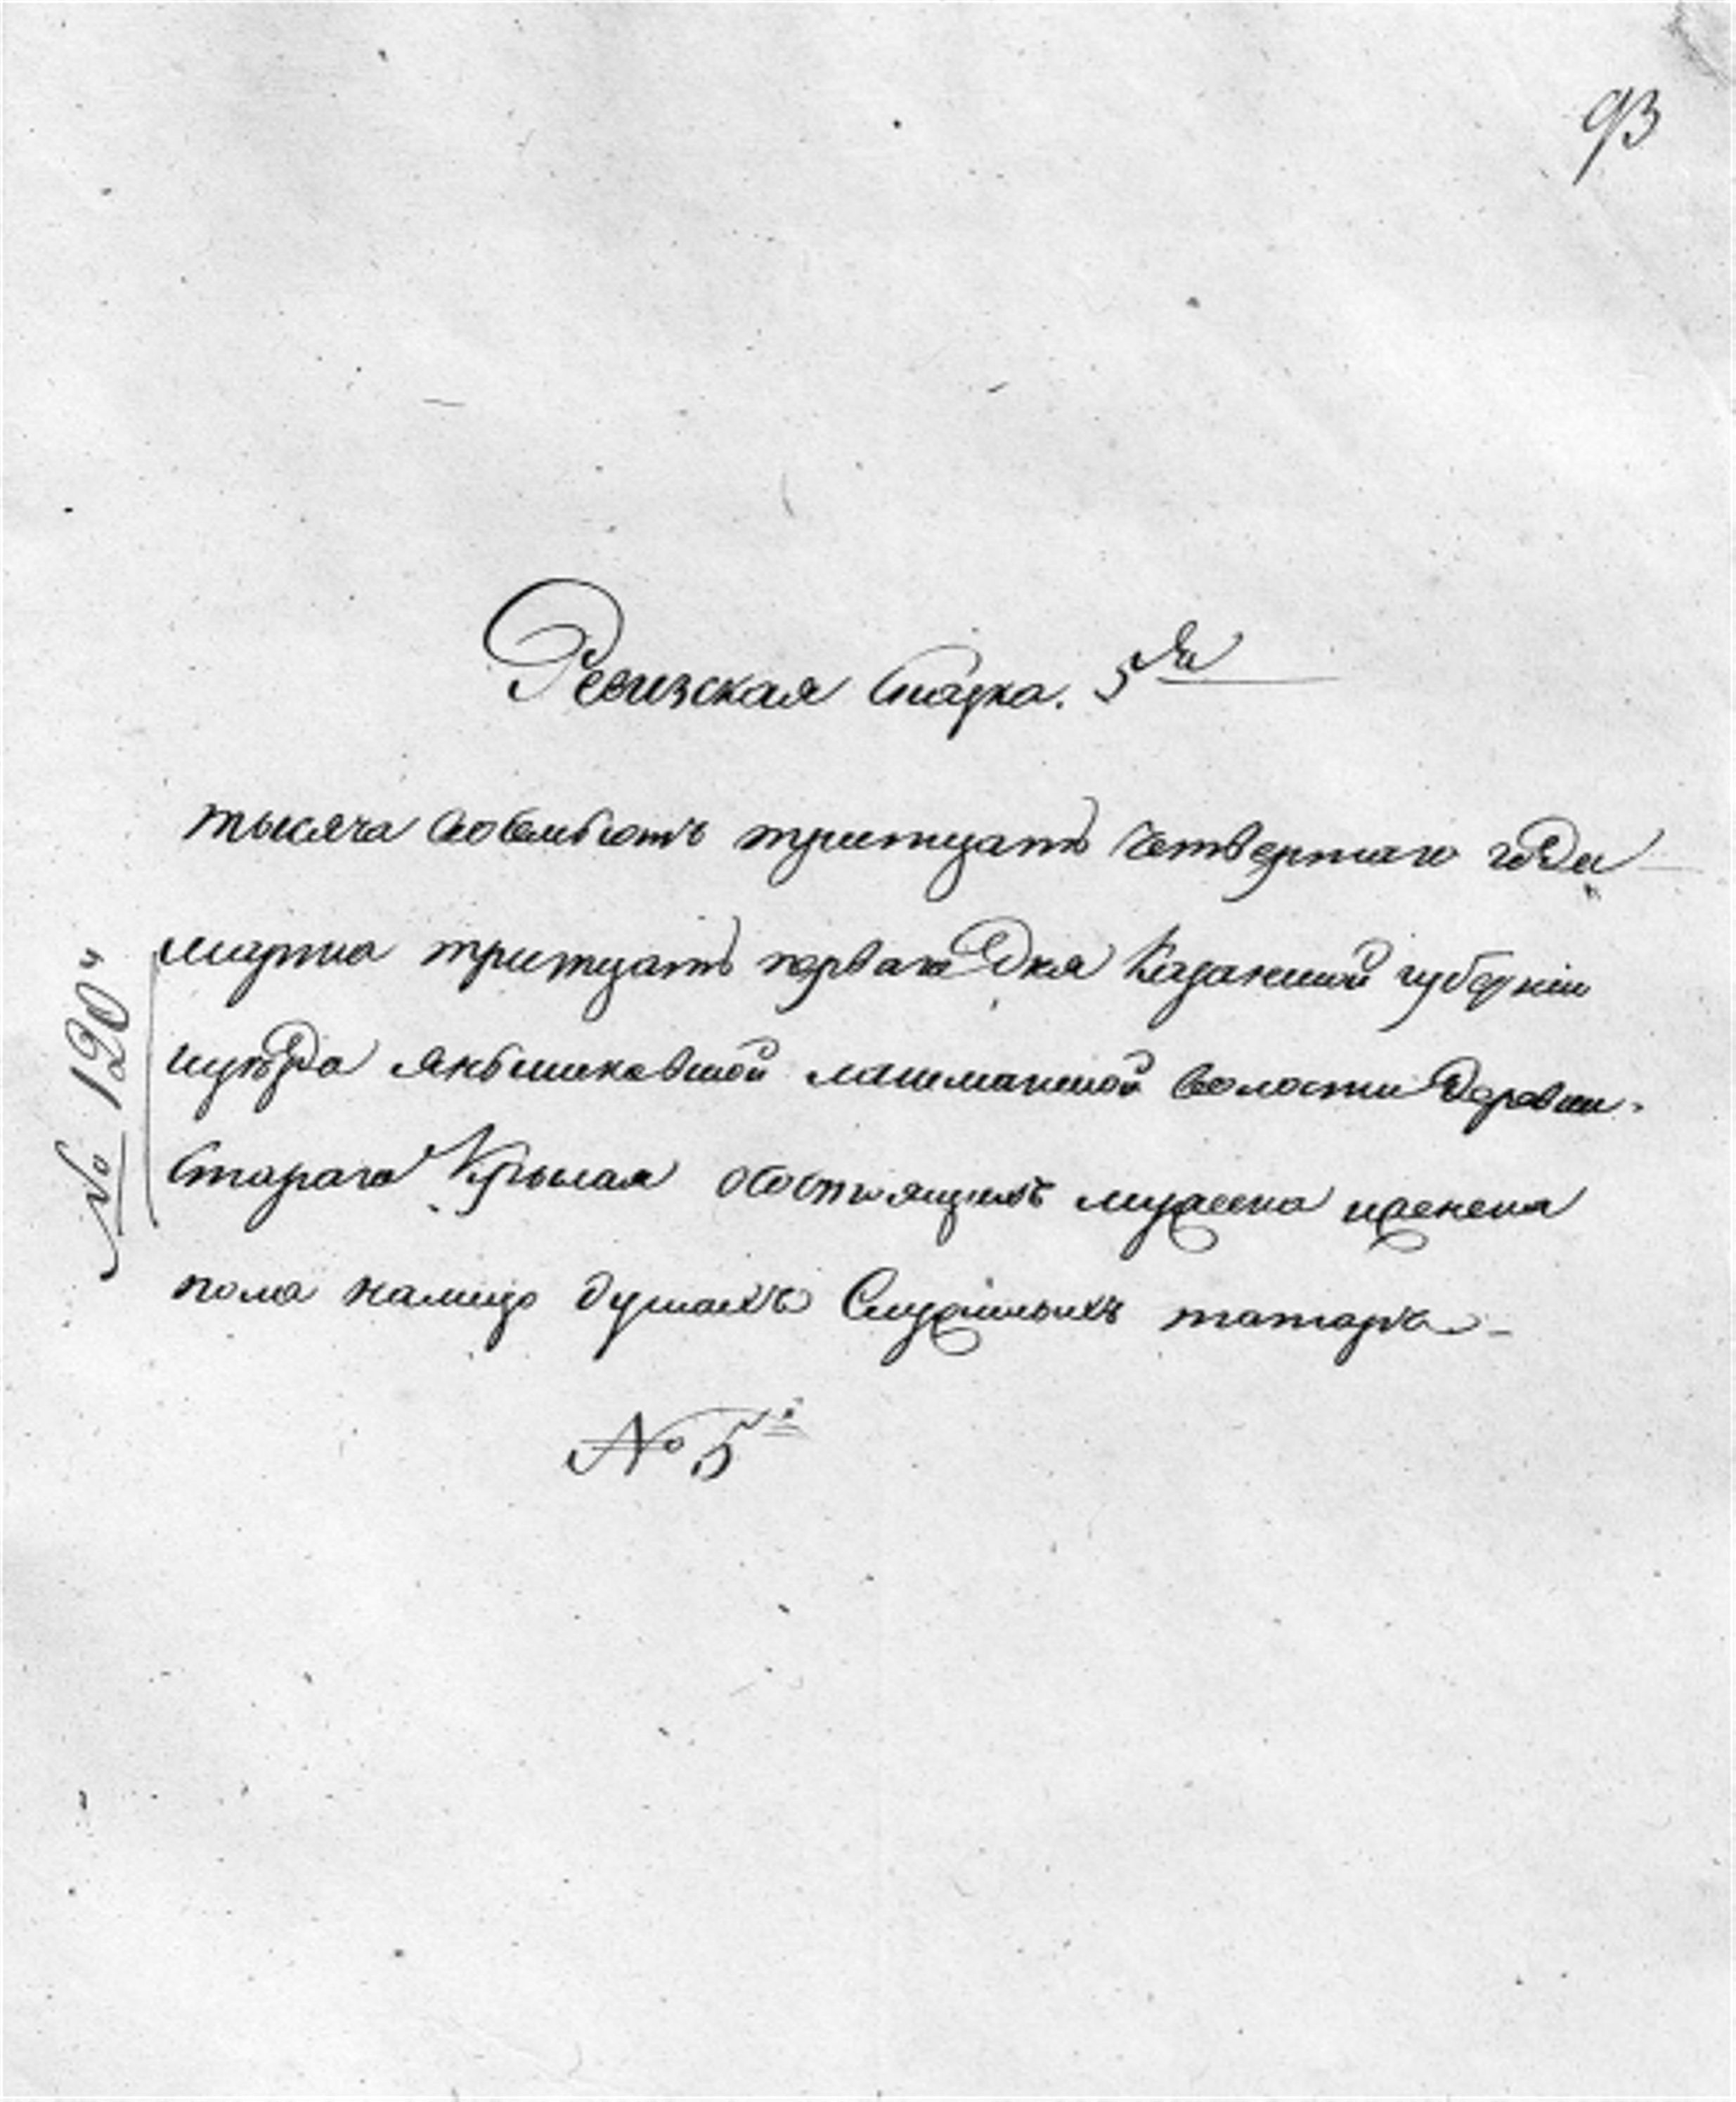 93
Ревизская сказка. 5я
тысяча восемьсотъ тритцать четвертаго года
марта тритцать перваго дня Казанской губернiи
уѣзда лашманской волости деревни
Стараго о состоящихъ мужеска и женска
пола налицо душахъ Служилыхъ татаръ
№ 5й
№ 120